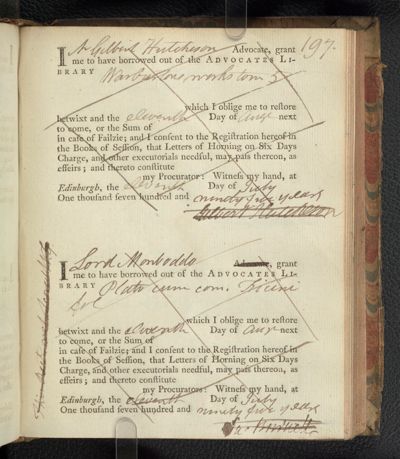 197.
I Mr Gilbert Hutcheson Advocate, grant
me to have borrowed out of the ADVOCATES LI-
BRARY Warburtons works tom 5
which I oblige me to reſtore
betwixt and the eleventh Day of Augt next
to come, or the Sum of
in caſe of Failzie; and I conſent to the Regiſtration hereof in
the Books of Seſſion, that Letters of Horning on Six Days
Charge, and other executorials needful, may paſs thereon, as
effeirs; and thereto conſtitute
my Procurator: Witneſs my hand, at
Edinburgh, the eleventh Day of July
One thouſand ſeven hundred and ninety five years
Gilbert Hutcheson
I Lord Monboddo Advocate, grant
me to have borrowed out of the ADVOCATES LI-
BRARY Plato cum com. Ficini
fol
which I oblige me to reſtore
betwixt and the eleventh Day of Augt next
to come, or the Sum of
in caſe of Failzie; and I conſent to the Regiſtration hereof in
the Books of Seſſion, that Letters of Horning on Six Days
Charge, and other executorials needful, may paſs thereon, as
effeirs; and thereto conſtitute
my Procurators: Witneſs my hand, at
Edinburgh, the eleventh Day of July
One thouſand ſeven hundred and ninety five years
Ja. Burnett